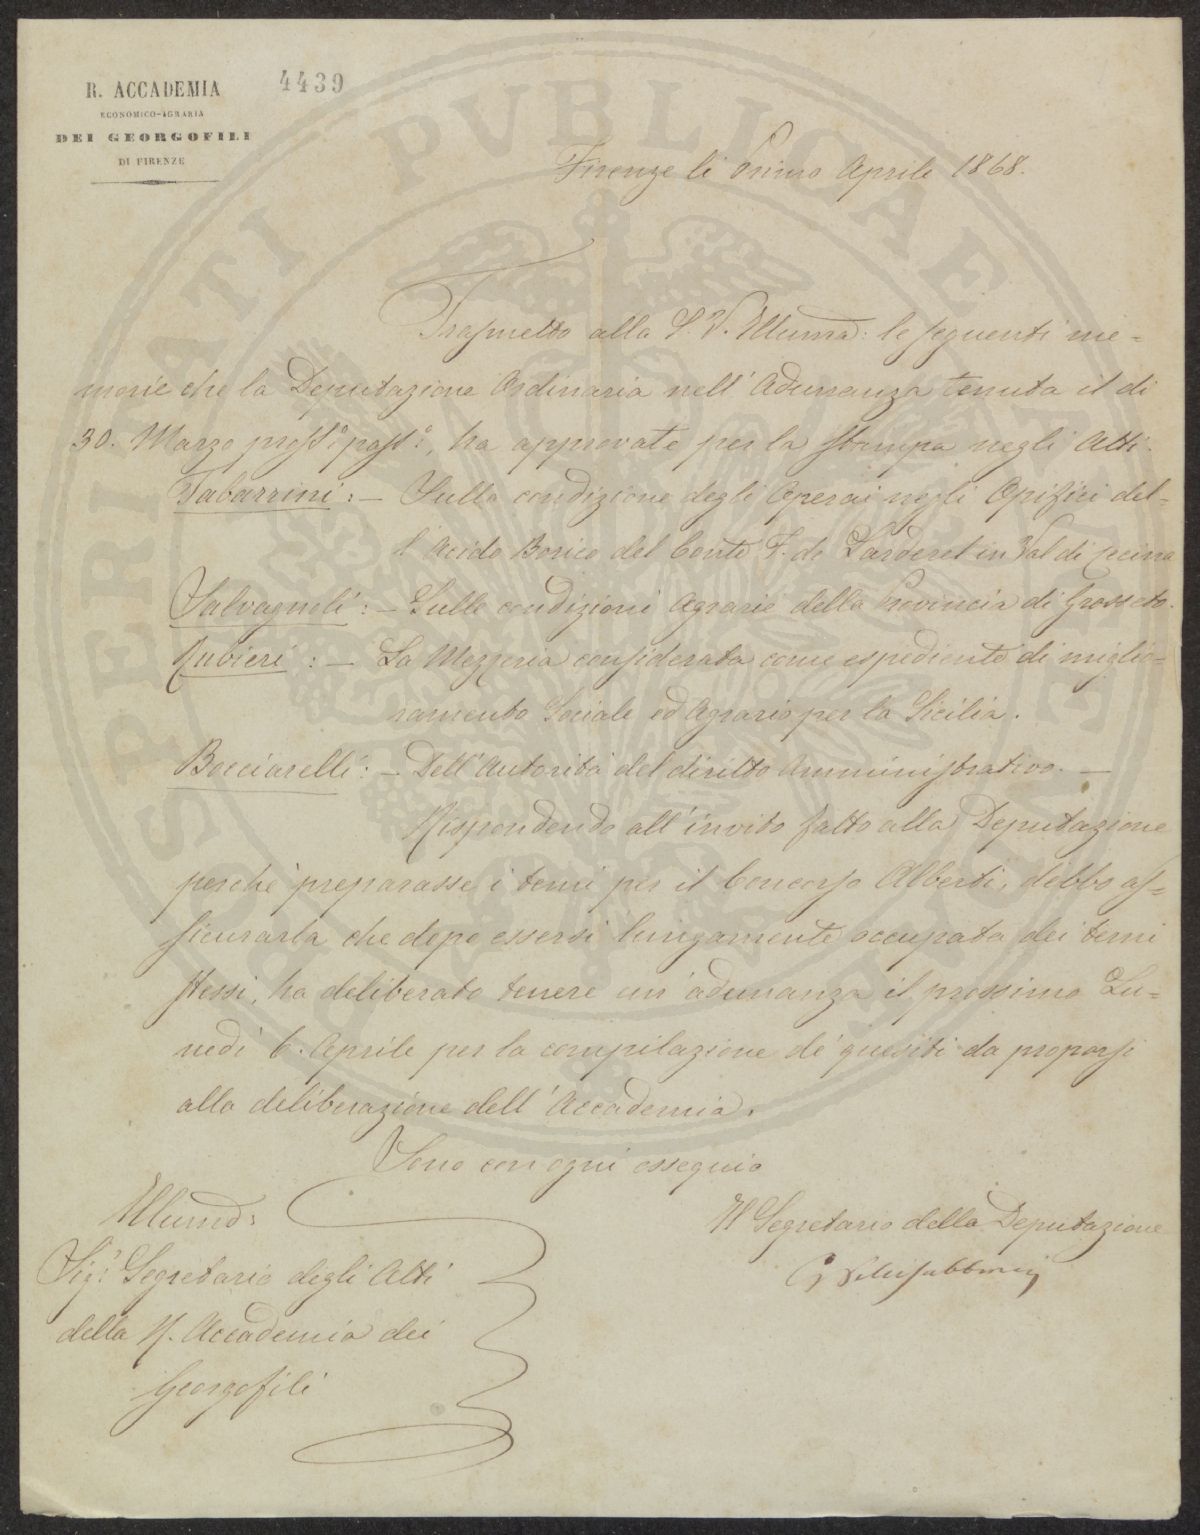 R. ACCADEMIA
ECONOMICO-AGRARIA
DEI GEORGOFILI
DI FIRENZE
4439
PROSPERITATI PUBLICAE AUGENDAE
Firenze li Primo Aprile 1868.
Trasmetto alla S. V. Illuma: le seguenti me-
morie che la Deputazione Ordinaria nell' Adunanza tenuta il di
30. Marzo pross.º pass.º, ha approvate per la stampa negli Atti.
Tabarrini: — Sulla condizione degli Operai negli Opifici del-
l'Acido Borico del Conte F. de Larderel in Val di Cecina
Salvagnoli: — Sulle condizioni Agrarie della Provincia di Grosseto.
Rubieri: — La Mezzeria considerata come espediente di miglio-
ramento Sociale ed Agrario per la Sicilia.
Bocciarelli: — Dell'Autorità del diritto Amministrativo. —
Rispondendo all'invito fatto alla Deputazione
perchè preparasse i temi per il Concorso Alberti, debbo as-
sicurarla che dopo essersi lungamente occupata dei temi
stessi, ha deliberato tenere un' adunanza il prossimo Lu-
nedì 6. Aprile per la compilazione de' quesiti da proporsi
alla deliberazione dell' Accademia.
Sono con ogni ossequio
Illumo:
Sigr Segretario degli Atti
della R. Accademia dei
Georgofili
Il Segretario della Deputazione